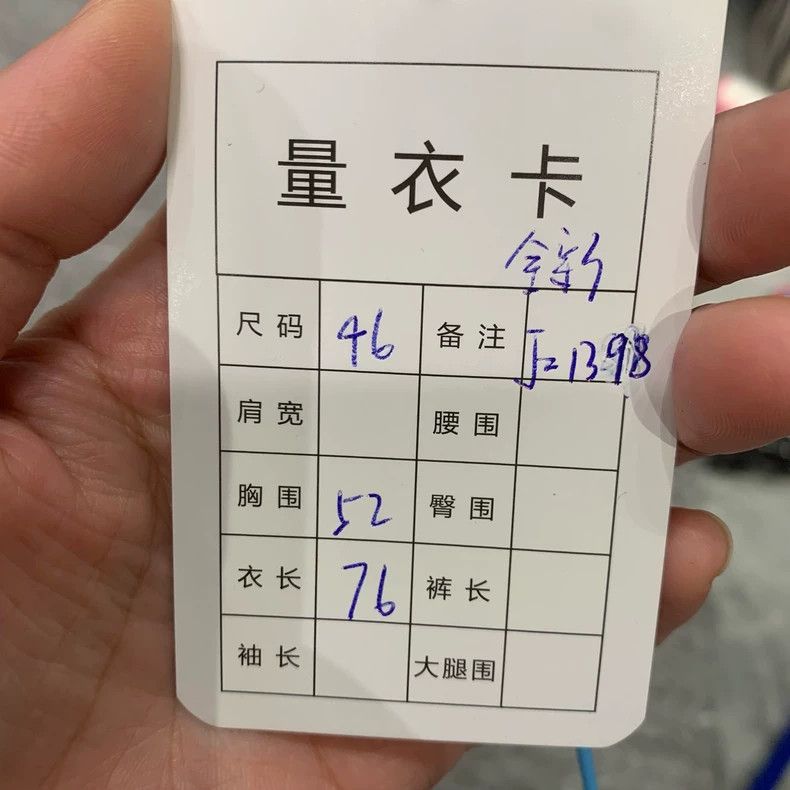 量衣卡
全新
尺码 46 备注 J=1398
肩宽 腰围
胸围 52 臀围
衣长 76 裤长
袖长 大腿围